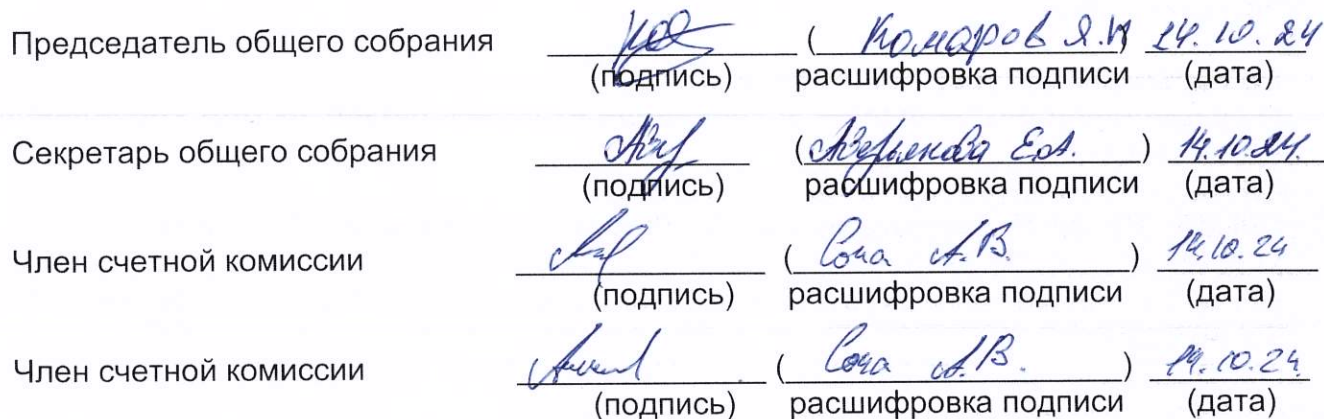 Председатель общего собрания ( Комаров Я.И) 14.10.24
(подпись) расшифровка подписи (дата)
Секретарь общего собрания ( Е.А. ) 14.10.24.
(подпись) расшифровка подписи (дата)
Член счетной комиссии ( Сона А.В. ) 14.10.24
(подпись) расшифровка подписи (дата)
Член счетной комиссии ( Сона А.В. ) 14.10.24
(подпись) расшифровка подписи (дата)